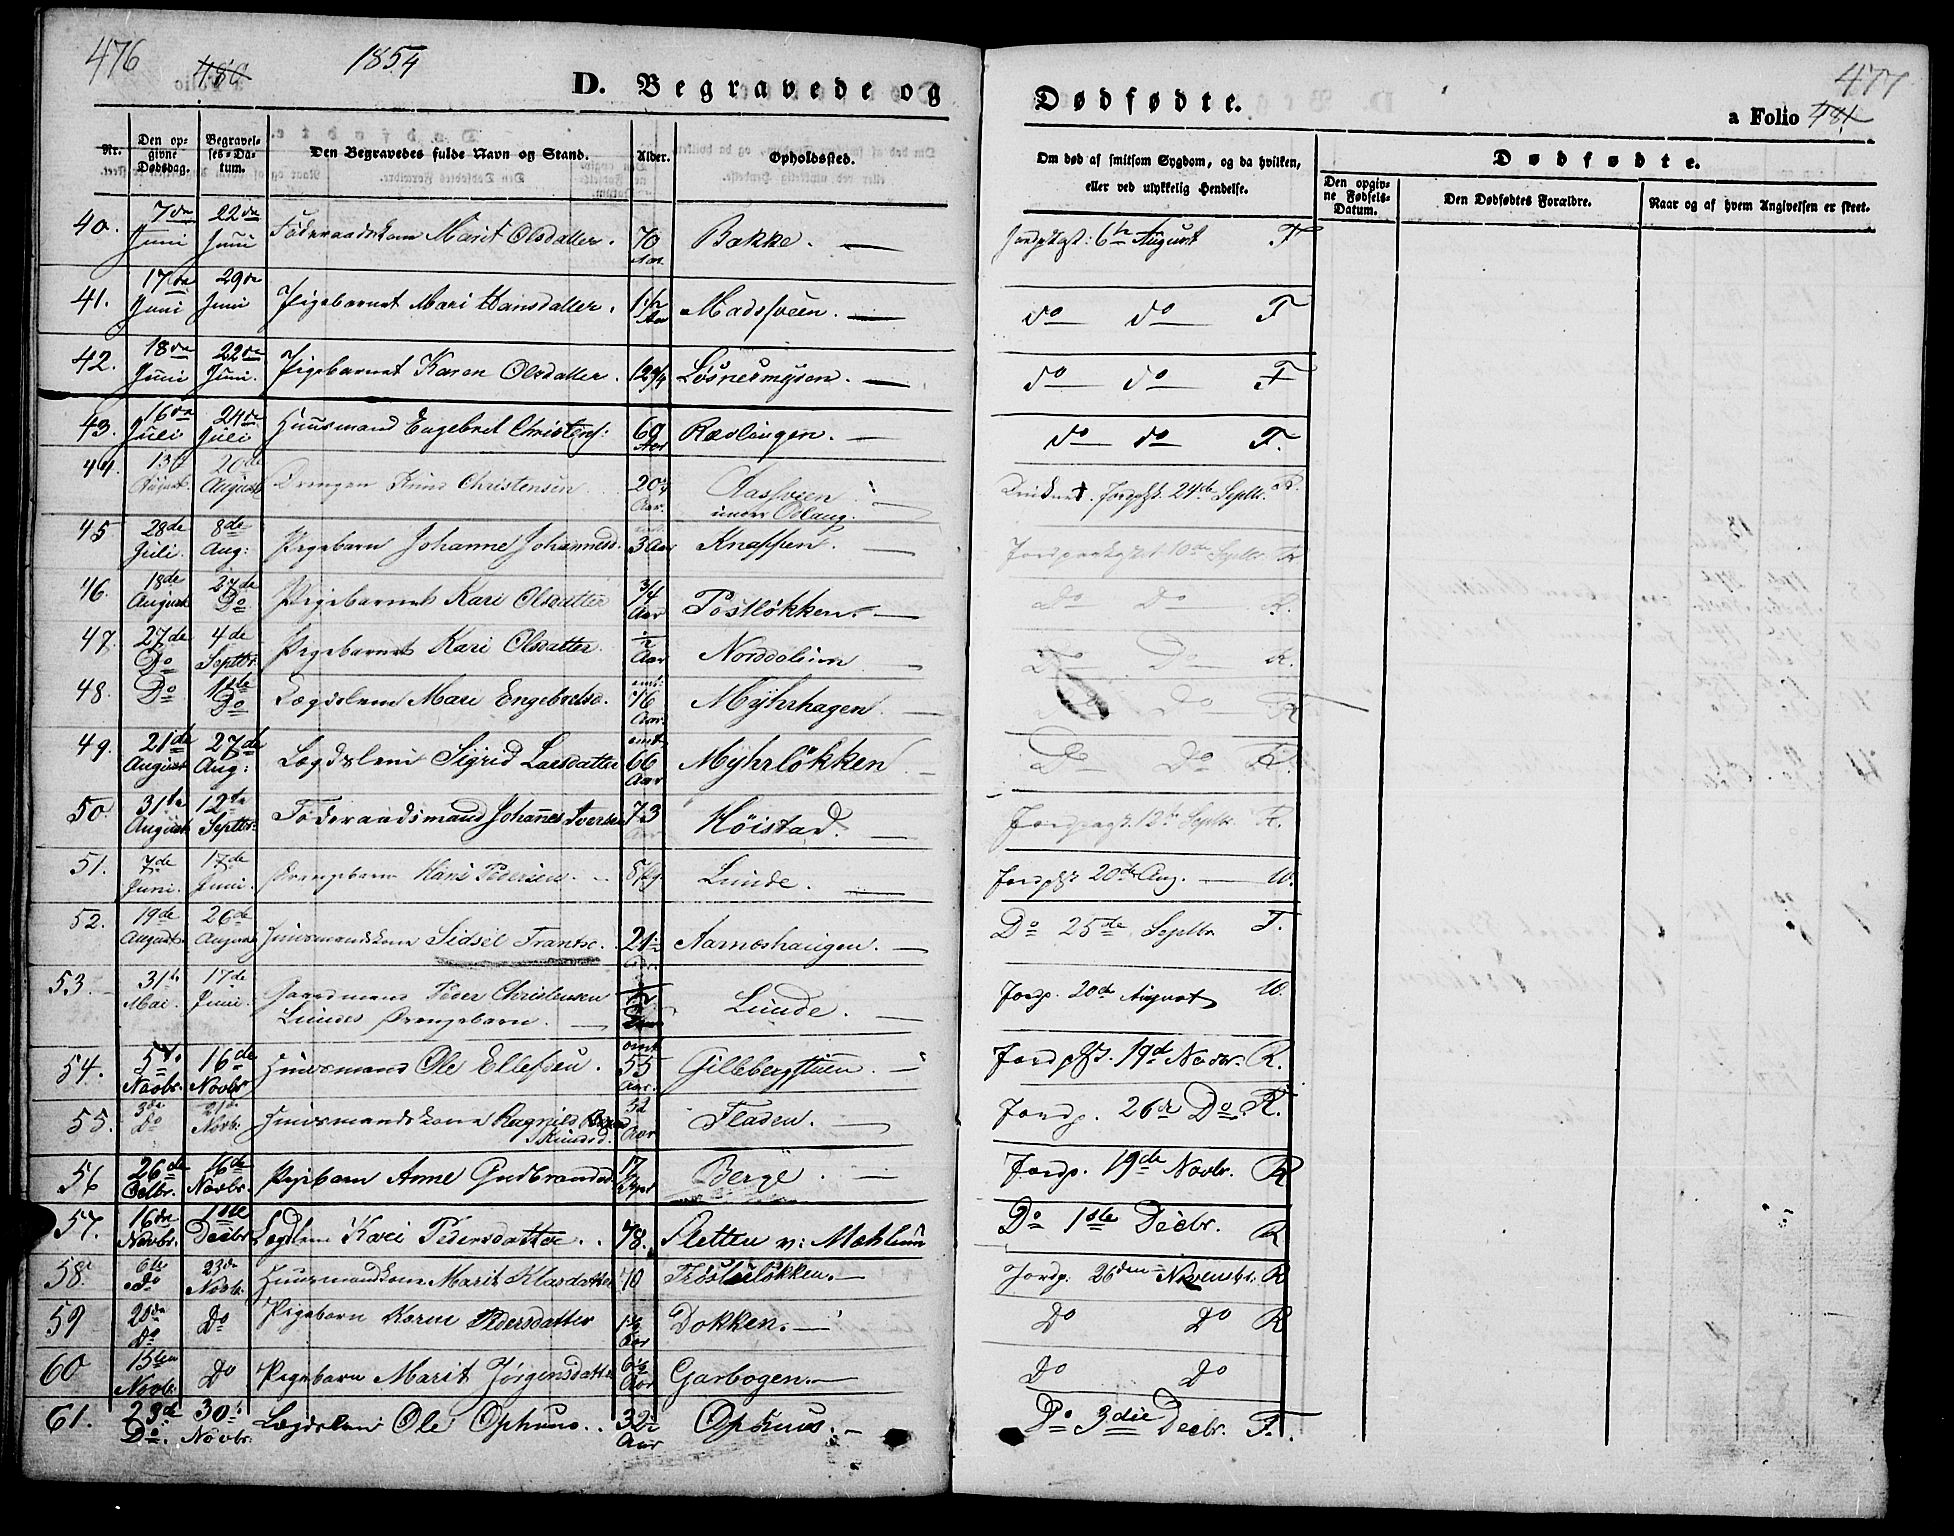 476 480 1854
D. Begravede og
Nr. Den opgivne Dødsdag. Begravelses-Datum. Den Begravedes fulde Navn og Stand. Alder. Opholdssted.
40. 7de Juni 22de Juni Föderaadskone Marit Olsdatter. 70 Aar Bakke.
41. 17de Juni 29de Juni Pigebarnet Mari Hansdatter. 1 1/2 Aar Madssveen.
42. 18de Juni 22de Juni. Pigebarnet Karen Olsdatter. Løsnesmyren.
43. 16de Juli 24de Juli Huusmand Engebret Christens: 60 Aar Rævlingen.
44. 13de August 20de August Drengen Knud Christensen 20 Aar. Aassveen under Odlaug.
45 28de Juli. 8de Aug: Pigebarn Johanne Johannesd. 3 Aar Knappen.
46. 18de August 27de Do Pigebarnet Kari Olsdatter 3/4 Aar Postløkken.
47. 27de Do 4de Septbr. Pigebarnet Kari Olsdatter. 1/2 Aar Norddalien
48. Do 11te Do Lægdslem Mari Engebretsd. 76 Aar. Myhrhagen
49. 21de August 27de Aug: Lægdslem Sigrid Larsdatter 66 Aar Myhrløkken
50. 31te August 12te Septbr. Föderaadsmand Johannes Iversen 73 Aar Høistad.
51. 7de Juni. 17de Juni. Drengebarn Hans Pedersen. Lunde.
52. 19de August 26de August Huusmandskone Sidsel Frantsd. 21 Aar. Aarneshaugen.
53. 31te Mai. 17de Juni. Gaardmand Peder Christensen
Lundes Drengebarn. Lunde.
54. 5te Novbr. 16de Novbr Huusmand Ole Ellefsen. omt 55 Aar. Gillebergstuen.
55. 3de Do 21de Novb. Huusmandskone Ragnild
Knudsd. 52 Aar Fladen.
56 26de Octbr. 16de Novbr. Pigebarn Anne Gudbrandsd. 17 Berge
57. 16de Novbr. 1ste Decbr Lægdslem Kari Pedersdatter. 78. Sletten v: Mæhlum
58. 6te Do 23de Novb. Huusmandskone Marit Klasdatter 70 Frøsteløkken.
59 20de Do Do Pigebarn Karen Pedersdatter Aar Dokken.
60 15ten Novb. Do Pigebarn Marit Jørgensdatter Aar Garbogen.
61. 23de Do. 30te Novbr. Lægdslem Ole Ophuus. 32 Aar Ophuus.
477
Dødfødte. a Folio 481
Om død af smitsom Sygdom, og da hvilken, eller ved ulykkelig Hendelse. Dødfødte.
Den opgivne Fødsels-Datum. Den Dødfødtes Forældre. Naar og af hvem Angivelsen er skeet.
Jordpkast: 6te August F
do do F
do do F
do do F.
Druknet. Jordpkt. 24de Septbr. R.
Jordpaakastet 10de Septbr. R
Do Do R.
Do Do R.
Do Do R
Do Do R.
Jordpagt. 12te Septbr. R.
Jordpkt 20de Aug. W.
Do 25de Septbr F.
Jordp. 20de August W.
Jordpkt. 19de Novbr. R.
Jordp. 26de Do. R.
Jordp. 19de Novbr. R
Do 1ste Decbr. R
Jordp. 26den Novembr. R
Do Do R
Do Do
Do 3die Decbr. F.